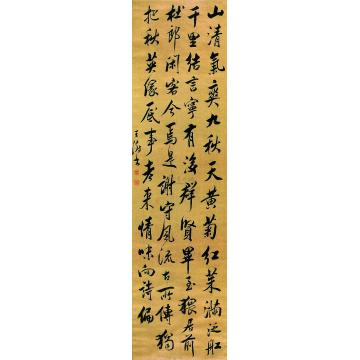 山清氣爽九秋天黃菊紅茱滿泛舡
千里結言寧有後群賢畢至猥居前
杜郎閑客今焉是謝守風流古所傳獨
把秋英緣底事老來情味向詩偏